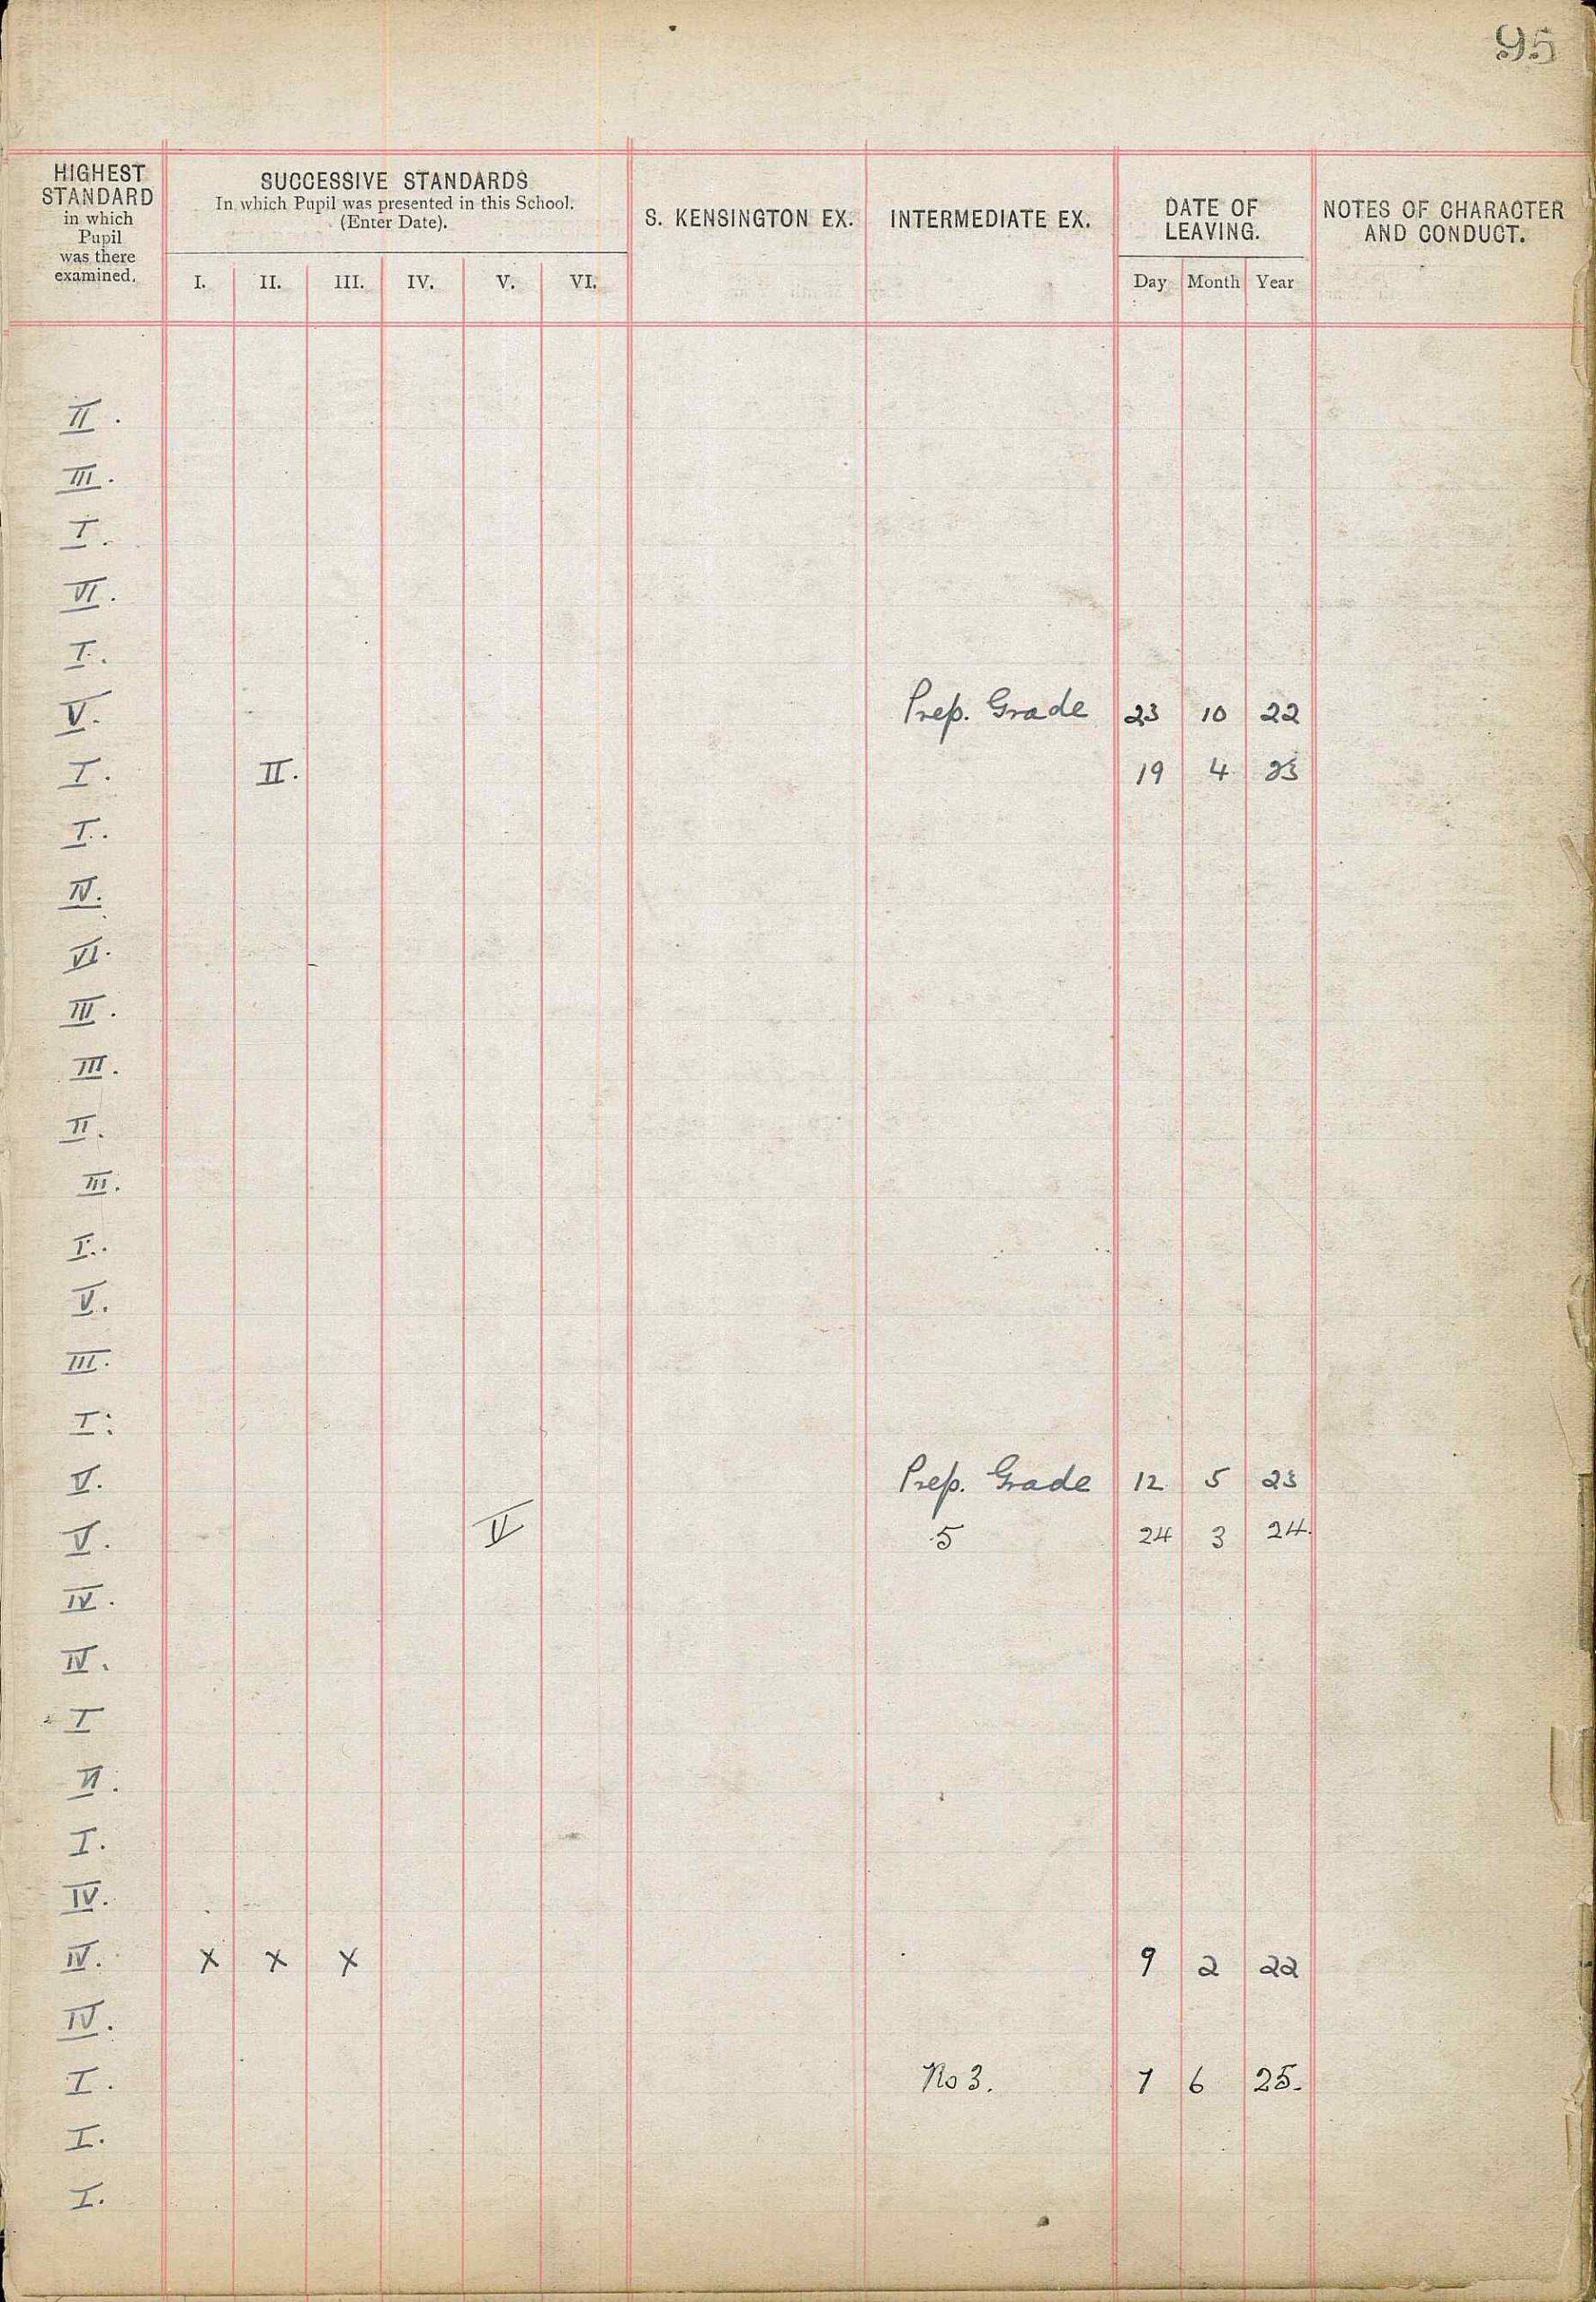 95
HIGHEST STANDARD in which Pupil was there examined.
SUCCESSIVE STANDARDS
In which Pupil was presented in this School.
(Enter Date).
I. II. III. IV. V. VI.
S. KENSINGTON EX.
INTERMEDIATE EX.
DATE OF LEAVING.
Day Month Year
NOTES OF CHARACTER AND CONDUCT.
II.
III.
I.
VI.
I.
V. Prep. Grade 23 10 22
I. II. 19 4 23
I.
IV.
VI.
III.
III.
II.
III.
I.
V.
III.
I.
V. Prep. Grade 12 5 23
V. V 5 24 3 24.
IV.
IV.
I
II.
I.
IV.
IV. X X X 9 2 22
IV.
I. No 3. 7 6 25.
I.
I.